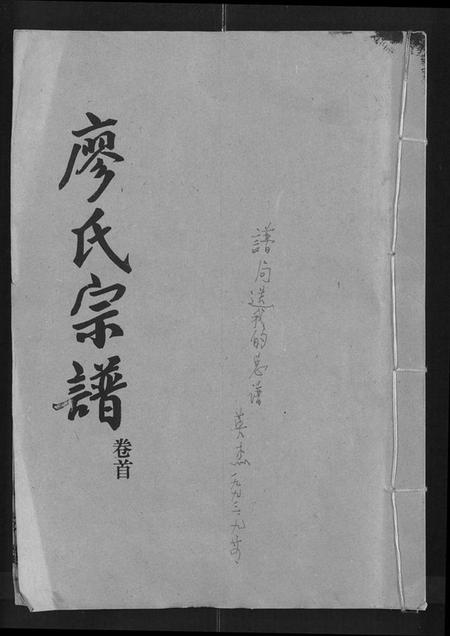 廖氏宗譜
卷首
譜局送我的总谱
英杰一九九三、九、